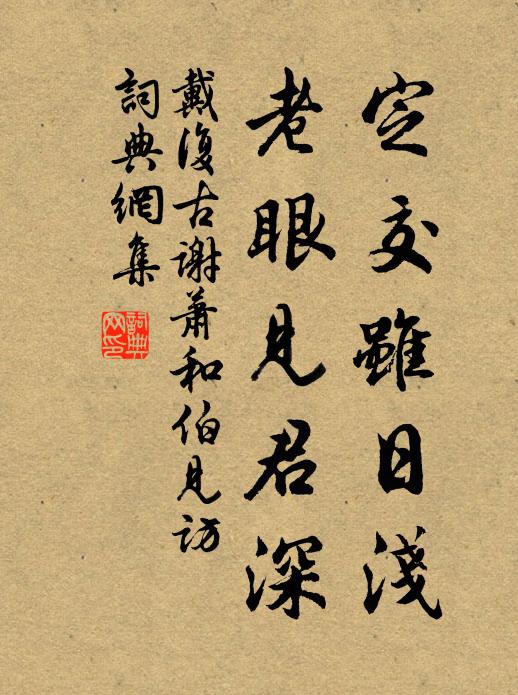 定交雖日淺
老眼見君深
戴復古謝蕭和伯見訪
詞典網集
詞典网印